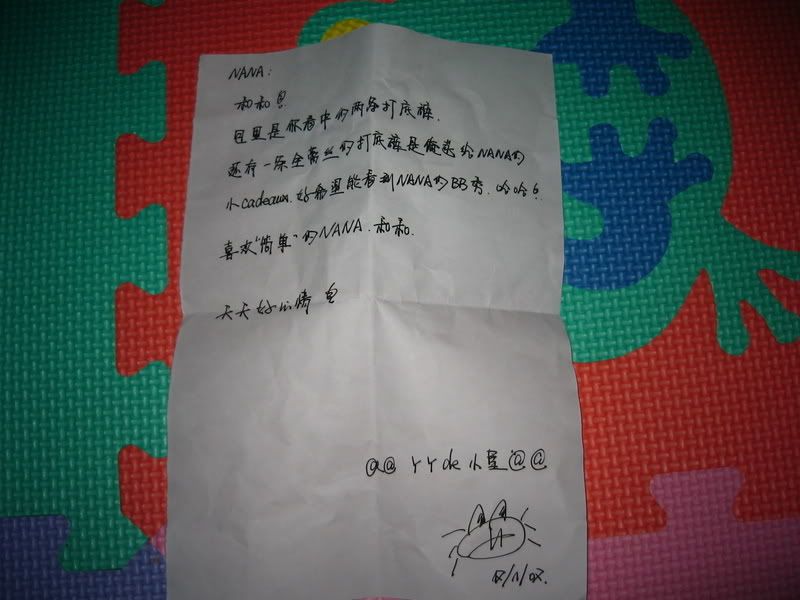 NANA:
和和
包里是你看中的两条打底裤.
还有一条全蕾丝的打底裤是俺送给NANA的
小cadeaux.好希望能看到NANA的BB秀.哈哈
喜欢“简单”的NANA.和和.
天天好心情
@@ YYde小星@@